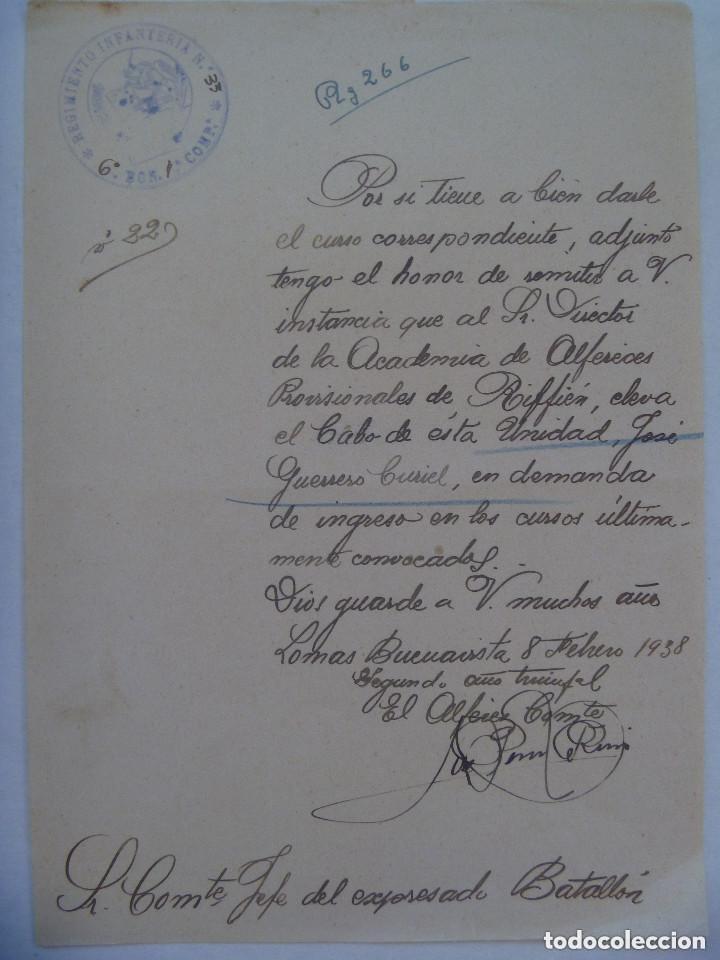 * REGIMIENTO INFANTERIA N.º 33 *
6º BON. 1ª COMPª
Rg 266
nº 22
Por si tiene a bien darle
el curso correspondiente, adjunto
tengo el honor de remitir a V.
instancia que al Sr. Director
de la Academia de Alfereces
Provisionales de Riffién, eleva
el Cabo de ésta Unidad, José
Guerrero Curiel, en demanda
de ingreso en los cursos última-
mente convocados. -
Dios guarde a V. muchos años
Lomas Buenavista 8 Febrero 1938
Segundo año triunfal
El Alferez Comte
Sr. Comte, Jefe del expresado Batallón
todocoleccion
todocoleccion.net